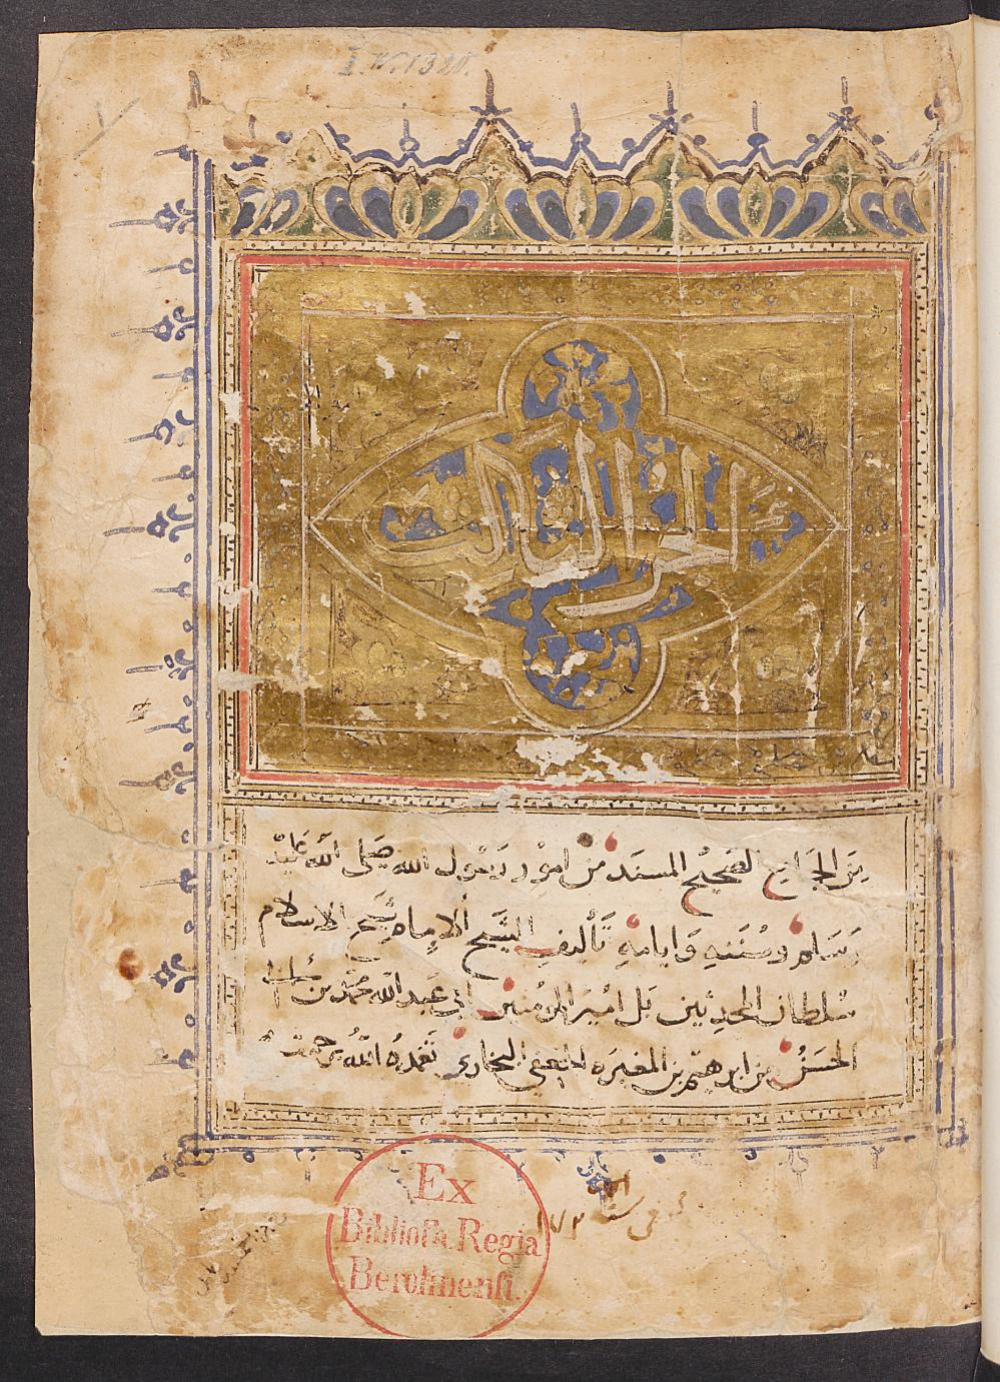 I. W. 1320.
الجزء الثالث
من الجامع الصحيح المسند من امور رسول الله صلى الله عليه
وسلم وسننه وايامه تأليف الشيخ الامام شيخ الاسلام
سلطان المحدثين بل امير المؤمنين ابي عبد الله محمد بن
الحسن بن ابرهيم بن المغيره الجعفي البخاري تغمده الله برحمته
في سنة
Ex
Bibliotha Regia
Berolinensi.